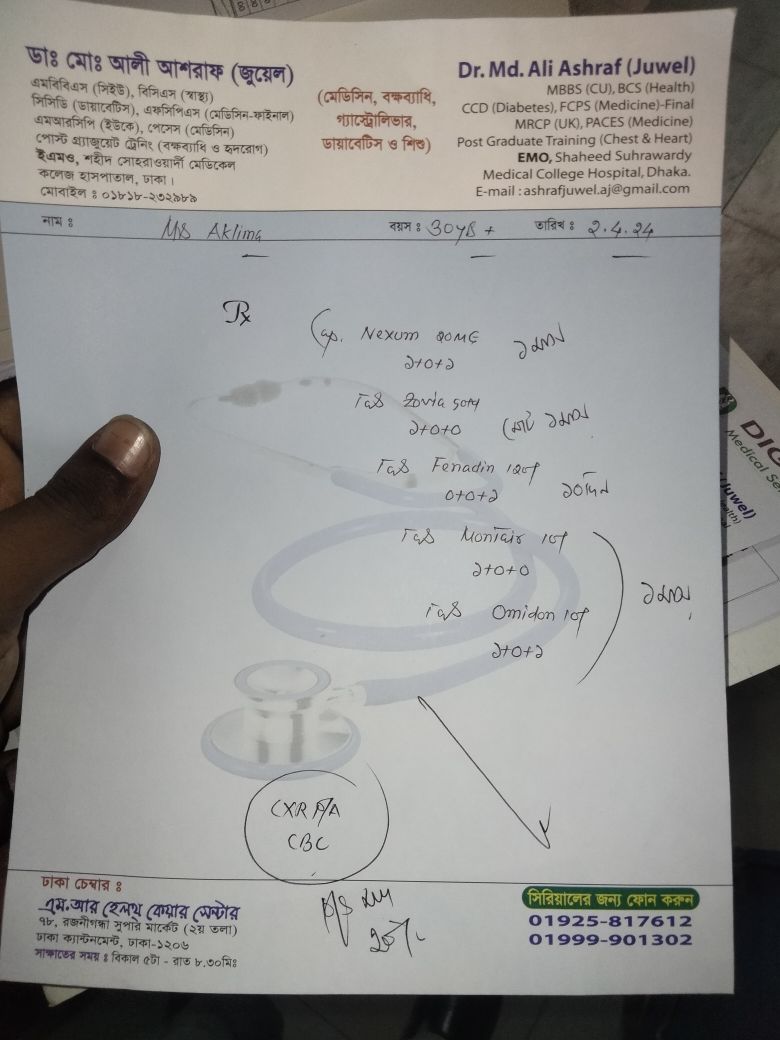 ডাঃ মোঃ আলী আশরাফ (জুয়েল)
এমবিবিএস (সিইউ), বিসিএস (স্বাস্থ্য)
সিসিডি (ডায়াবেটিস), এফসিপিএস (মেডিসিন-ফাইনাল)
এমআরসিপি (ইউকে), পেসেস (মেডিসিন)
পোস্ট গ্র্যাজুয়েট ট্রেনিং (বক্ষব্যাধি ও হৃদরোগ)
ইএমও, শহীদ সোহরাওয়ার্দী মেডিকেল
কলেজ হাসপাতাল, ঢাকা।
মোবাইল : ০১৮১৮-২৩২৯৮৯
(মেডিসিন, বক্ষব্যাধি,
গ্যাস্ট্রোলিভার,
ডায়াবেটিস ও শিশু)
Dr. Md. Ali Ashraf (Juwel)
MBBS (CU), BCS (Health)
CCD (Diabetes), FCPS (Medicine)-Final
MRCP (UK), PACES (Medicine)
Post Graduate Training (Chest & Heart)
EMO, Shaheed Suhrawardy
Medical College Hospital, Dhaka.
E-mail : ashrafjuwel.aj@gmail.com
নাম : MS Aklima বয়স : 30 yrs + তারিখ : 2.4.24
Rx
Cap. Nexum 20MG ১মাস
১+০+১
Tab Zovia ১মাস
১+০+০
Tab Fenadin ১০দিন
০+০+১
Tab Montair 10
১+০+০
১মাস
Tab Omidon 10
১+০+১
CXR P/A
CBC
ঢাকা চেম্বার :
এম.আর হেলথ কেয়ার সেন্টার
৭৮, রজনীগন্ধা সুপার মার্কেট (২য় তলা)
ঢাকা ক্যান্টনমেন্ট, ঢাকা-১২০৬
সাক্ষাতের সময় : বিকাল ৫টা - রাত ৮.৩০মিঃ
সিরিয়ালের জন্য ফোন করুন
01925-817612
01999-901302
DIG
Medical Se
(Juwel)